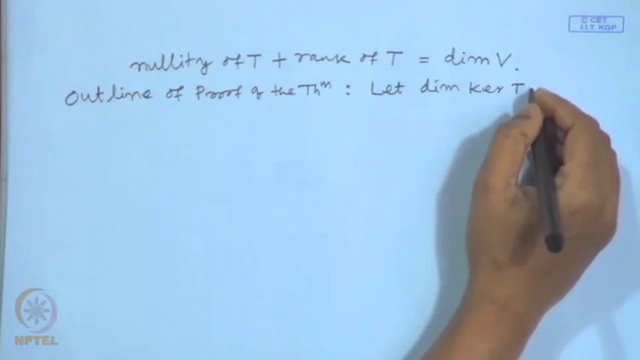 © CET
I.I.T. KGP
nullity of T + rank of T = dim V.
Outline of Proof of the Thm : Let dim ker T
NPTEL